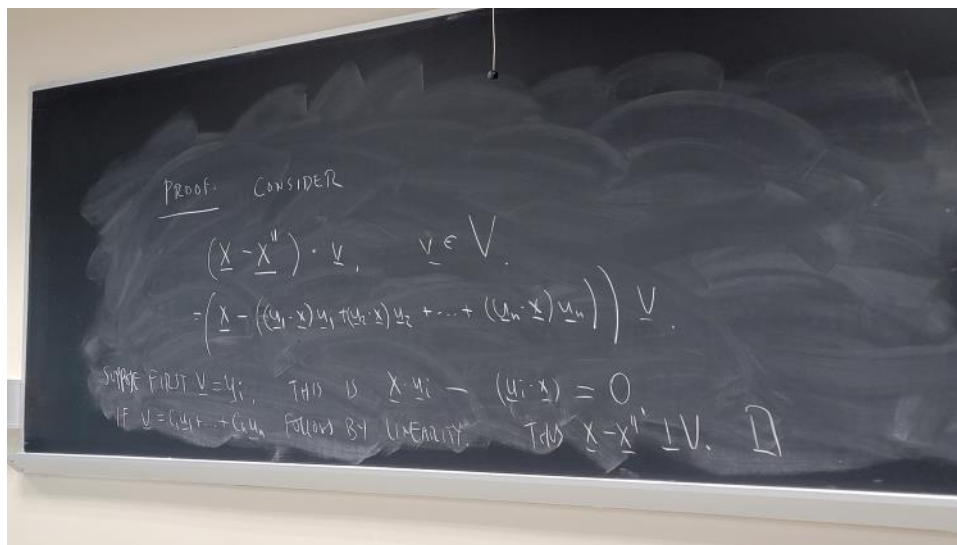 PROOF. CONSIDER
(x - x'') · v, v ∈ V.
= (x - ((u₁·x)u₁ + (u₂·x)u₂ + ... + (uₙ·x)uₙ)) v.
SUPPOSE FIRST v = uᵢ, THIS IS x·uᵢ - (uᵢ·x) = 0
IF v = c₁u₁ + ... + cₙuₙ FOLLOWS BY LINEARITY. THUS x - x'' ⊥ V.